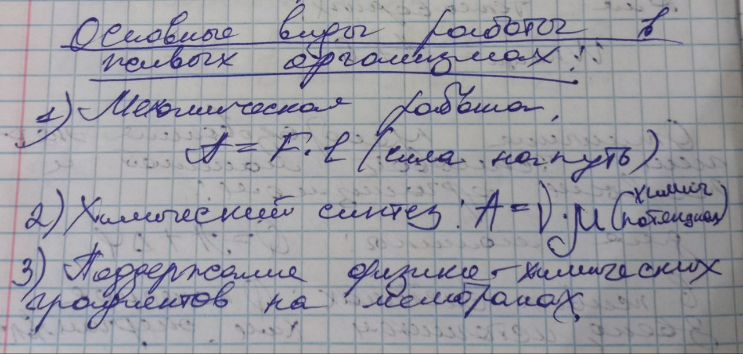 Основные виды работы в
живых организмах:
1) Механическая работа,
A = F · l (сила на путь)
2) Химический синтез: A = ν · μ (химич потенциал)
3) Поддержание физико-химических
градиентов на мембранах